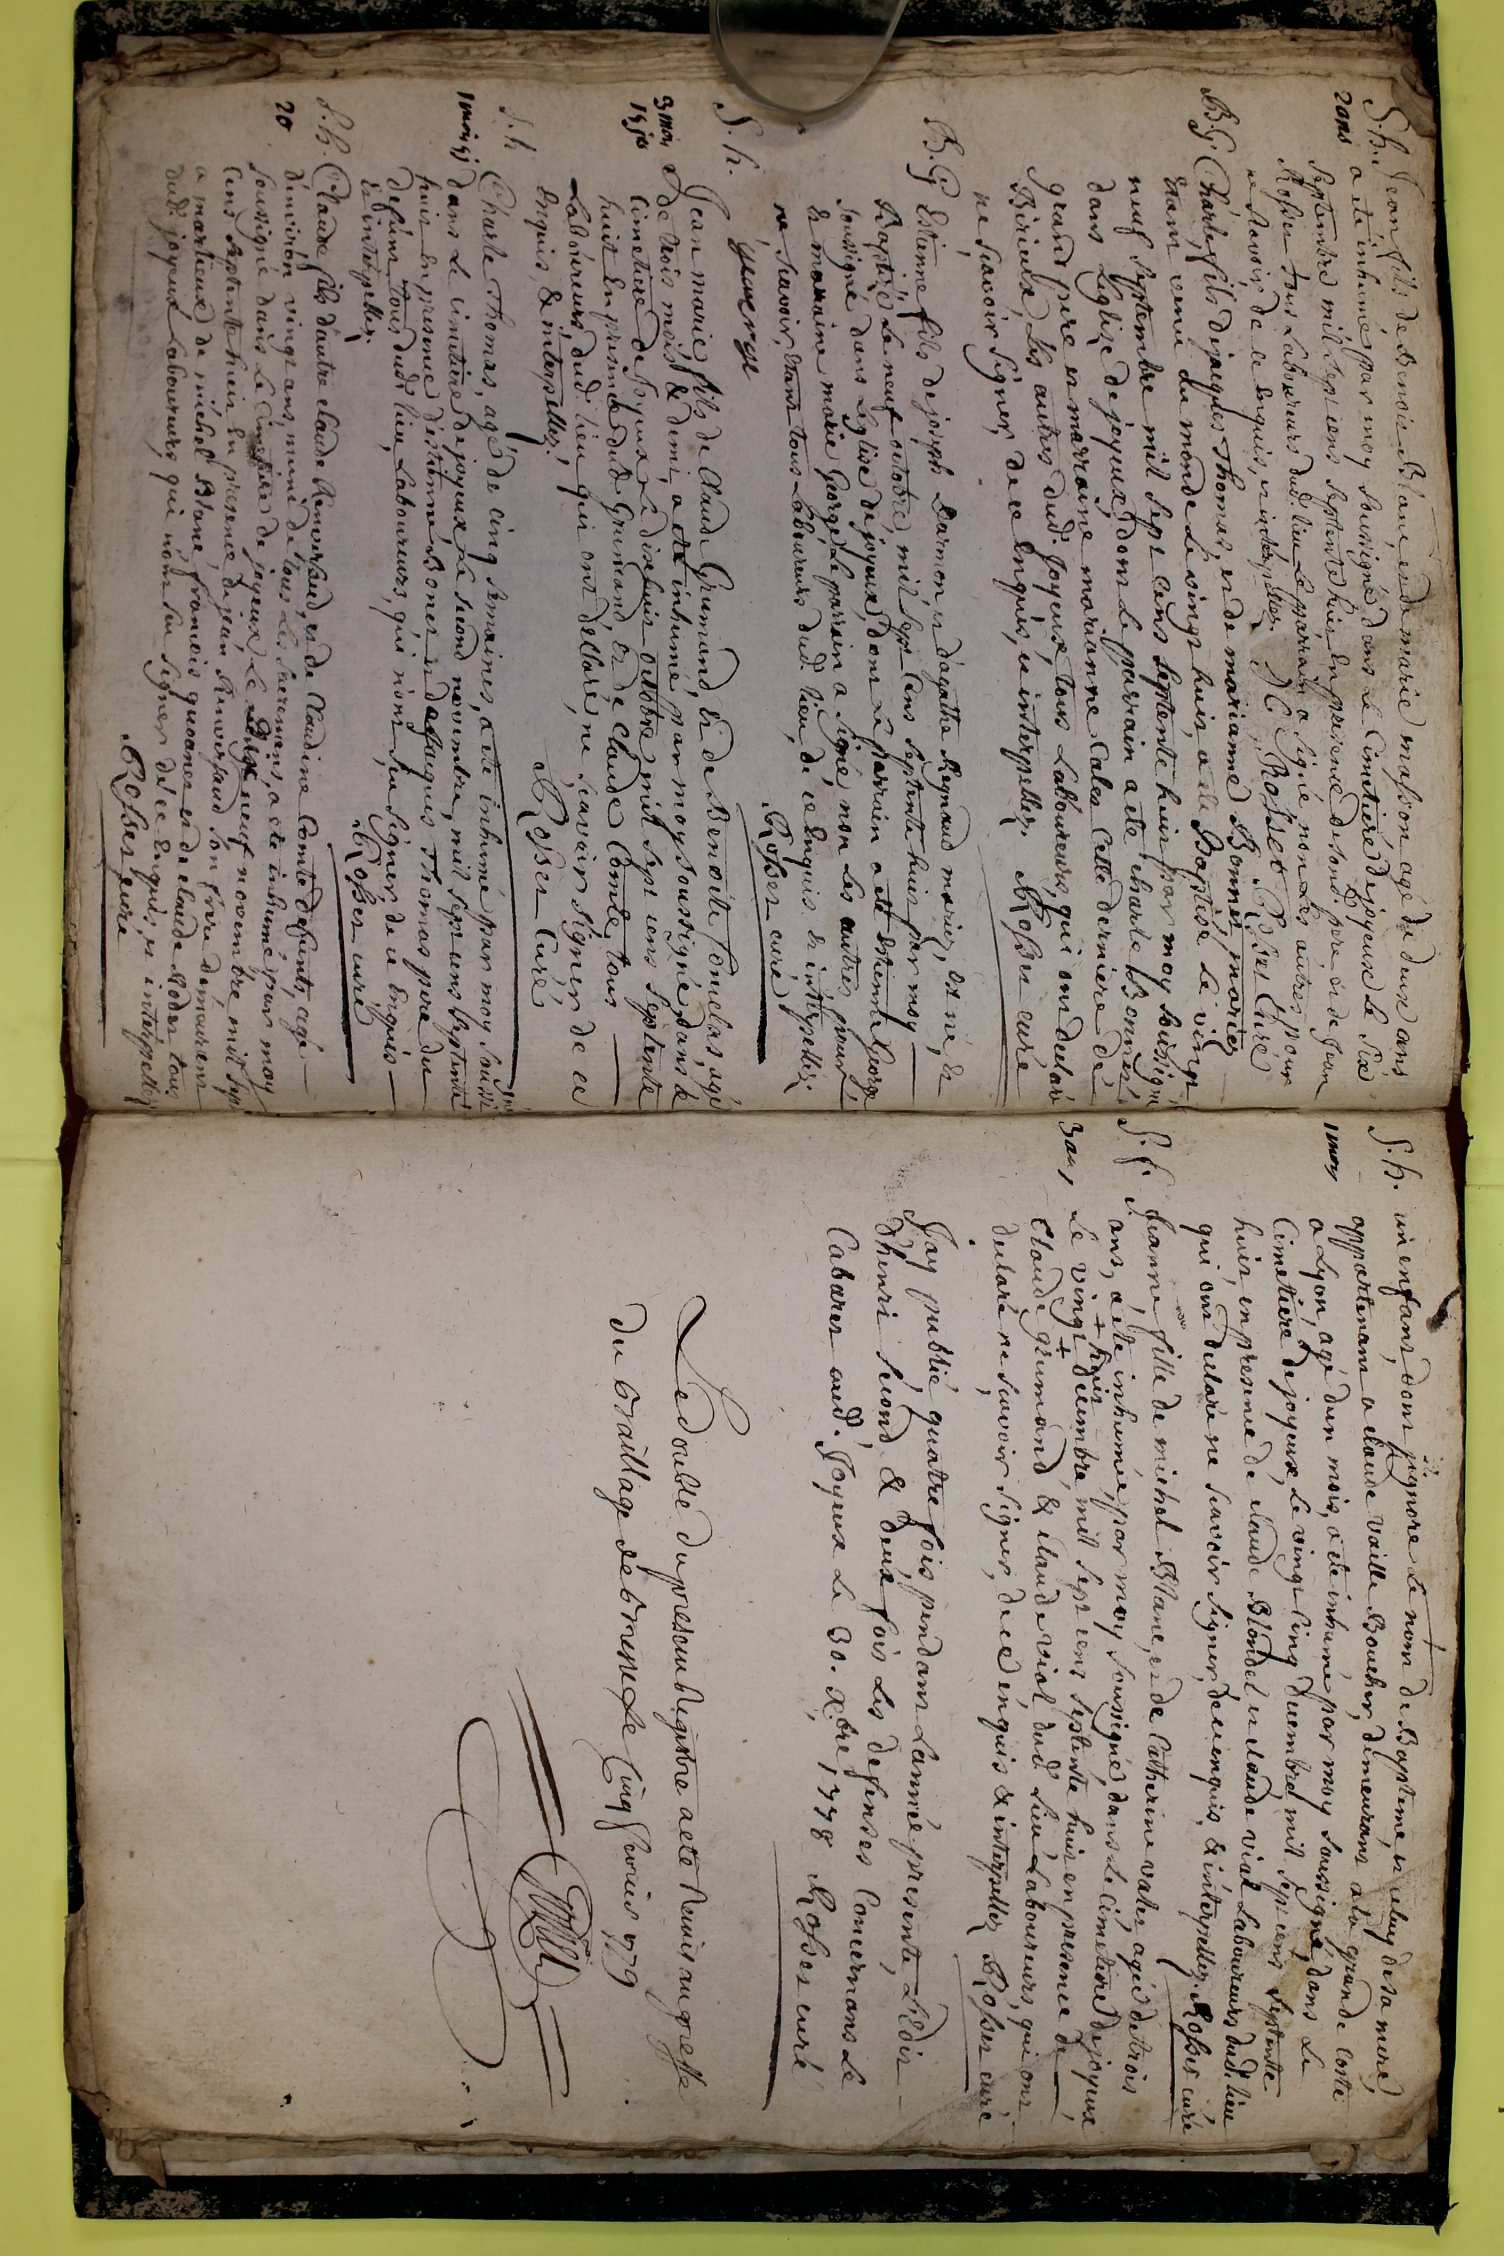 S.h. Jean fils de Benoit Blanc, et de marie mason agé de deux ans
2 ans a eté inhumé par moy soussigné dans le Cimetiere de joyeux le six
Septembre mil sept cens septente huit en presence de sond. pere, et de Jean
Rosset tous Laboureurs dud. lieu le parrain a signé non les autres pour
ne scavoir de ce enquis, et interpellez Rosset Curé
B.G. Charle, fils de jacques Thomas, et de marianne Bonnet, mariez
etant venu du monde le vingt huit, a eté Baptisé le vingt
neuf septembre mil sept cens septente huit par moy soussigné
dans l'eglise de joyeux dont le parrain a eté charle Bonnet
grand pere et marraine marianne Cales cette derniere de
Birieux, Les autres dud. joyeux, tous Laboureurs, qui ont declaré
ne scavoir signer, de ce enquis, et interpellez. Rosset curé
B.G Estienne fils de joseph Larmon, et d'agathe Reynaud mariez, est né, et
Baptizé le neuf octobre, mil sept cens septente huit par moy
soussigné dans l'eglise de joyeux, dont le parrain a eté estienne George
et marraine marie George Le parrain a signé non Les autres pour
ne scavoir, etant tous Laboureurs dud. lieu, de ce enquis et interpellez
george Rosset curé
S.h. Jean marie fils de Claude Grumand, et de Benoite agé
3 mois de trois mois et demi, a eté inhumé par moy soussigné dans le
15 js Cimetiere de Joyeux Le dix huit octobre mil sept cens septente
huit en presence dud. Grumand, et de Claude Comte, tous
Laboureurs dud. lieu qui ont declaré, ne scavoir signer de ce
enquis, & interpellez, Rosset Curé
S.h Charle Thomas, agé de cinq semaines, a eté inhumé par moy soussigné
1 mois dans le cimetiere de joyeux le second novembre, mil sept cens septente
huit en presence d'estienne Bonet et de jacques Thomas pere du
defunt tous dud. lieu, Laboureurs, qui n'ont, seu signer, de ce enquis
et interpellez, Rosset curé
S.h. Claude fils d'autre claude Renversaud, et de Claudine Comte defunts, agé
20 d'environ vingt ans, muni de tous les sacremens, a eté inhumé, par moy
soussigné dans le Cimetiere de joyeux, le neuf novembre mil sept
cens septente huit en presence, de jean Renversaud son frere demeurant
a marlieux de michel Blanc, francois et de claude Rodet tous
dud. joyeux Laboureurs, qui n'ont seu signer de ce enquis, et interpellez
Rosset curé
S.h. un enfant, dont j'ignore le nom de Baptême, et celuy de sa mere,
1 mois appartenant a claude vaille Boucher, demeurant a la grande coste
a Lyon, agé d'un mois, a eté inhumé par moy soussigné, dans le
Cimetiere de joyeux, le vingt cinq decembre mil sept cens septente
huit, en presence de claude Blondel et claude viat Laboureurs dud. lieu
qui ont declaré ne scavoir signer, de ce enquis, & interpellez. Rosset curé
S.f. Jeanne fille de michel Blanc, et de Catherine valet, agée de trois
3 ans, ans, a eté inhumée par moy soussigné, dans le cimetiere de joyeux
Le vingt huit decembre mil sept cens septente huit en presence de
Claude Grumand & claude viat dud. lieu, Laboureurs, qui ont
declaré ne scavoir signer, de ce enquis & interpellez Rosset curé
J'ay publié quatre fois pendant l'année presente, L'Edit
d'henri second & deux fois Les defenses Concernant le
Cabaret aud. Joyeux le 30. Xbre, 1778 Rosset curé
Le double du present Registre a eté Remis au greffe
du Bailliage de Bresse Le Cinq fevrier 1779